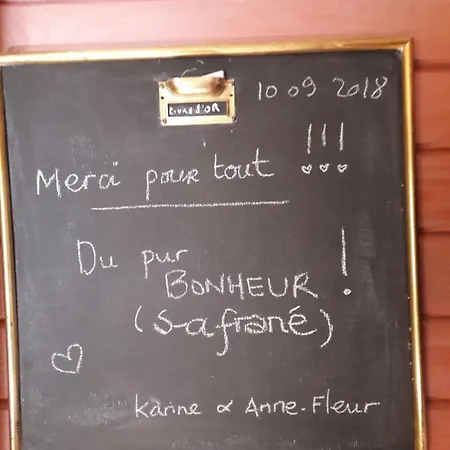 LIVRE d'OR
10 09 2018
Merci pour tout !!!
Du pur
BONHEUR !
(safrané)
Karine & Anne-Fleur